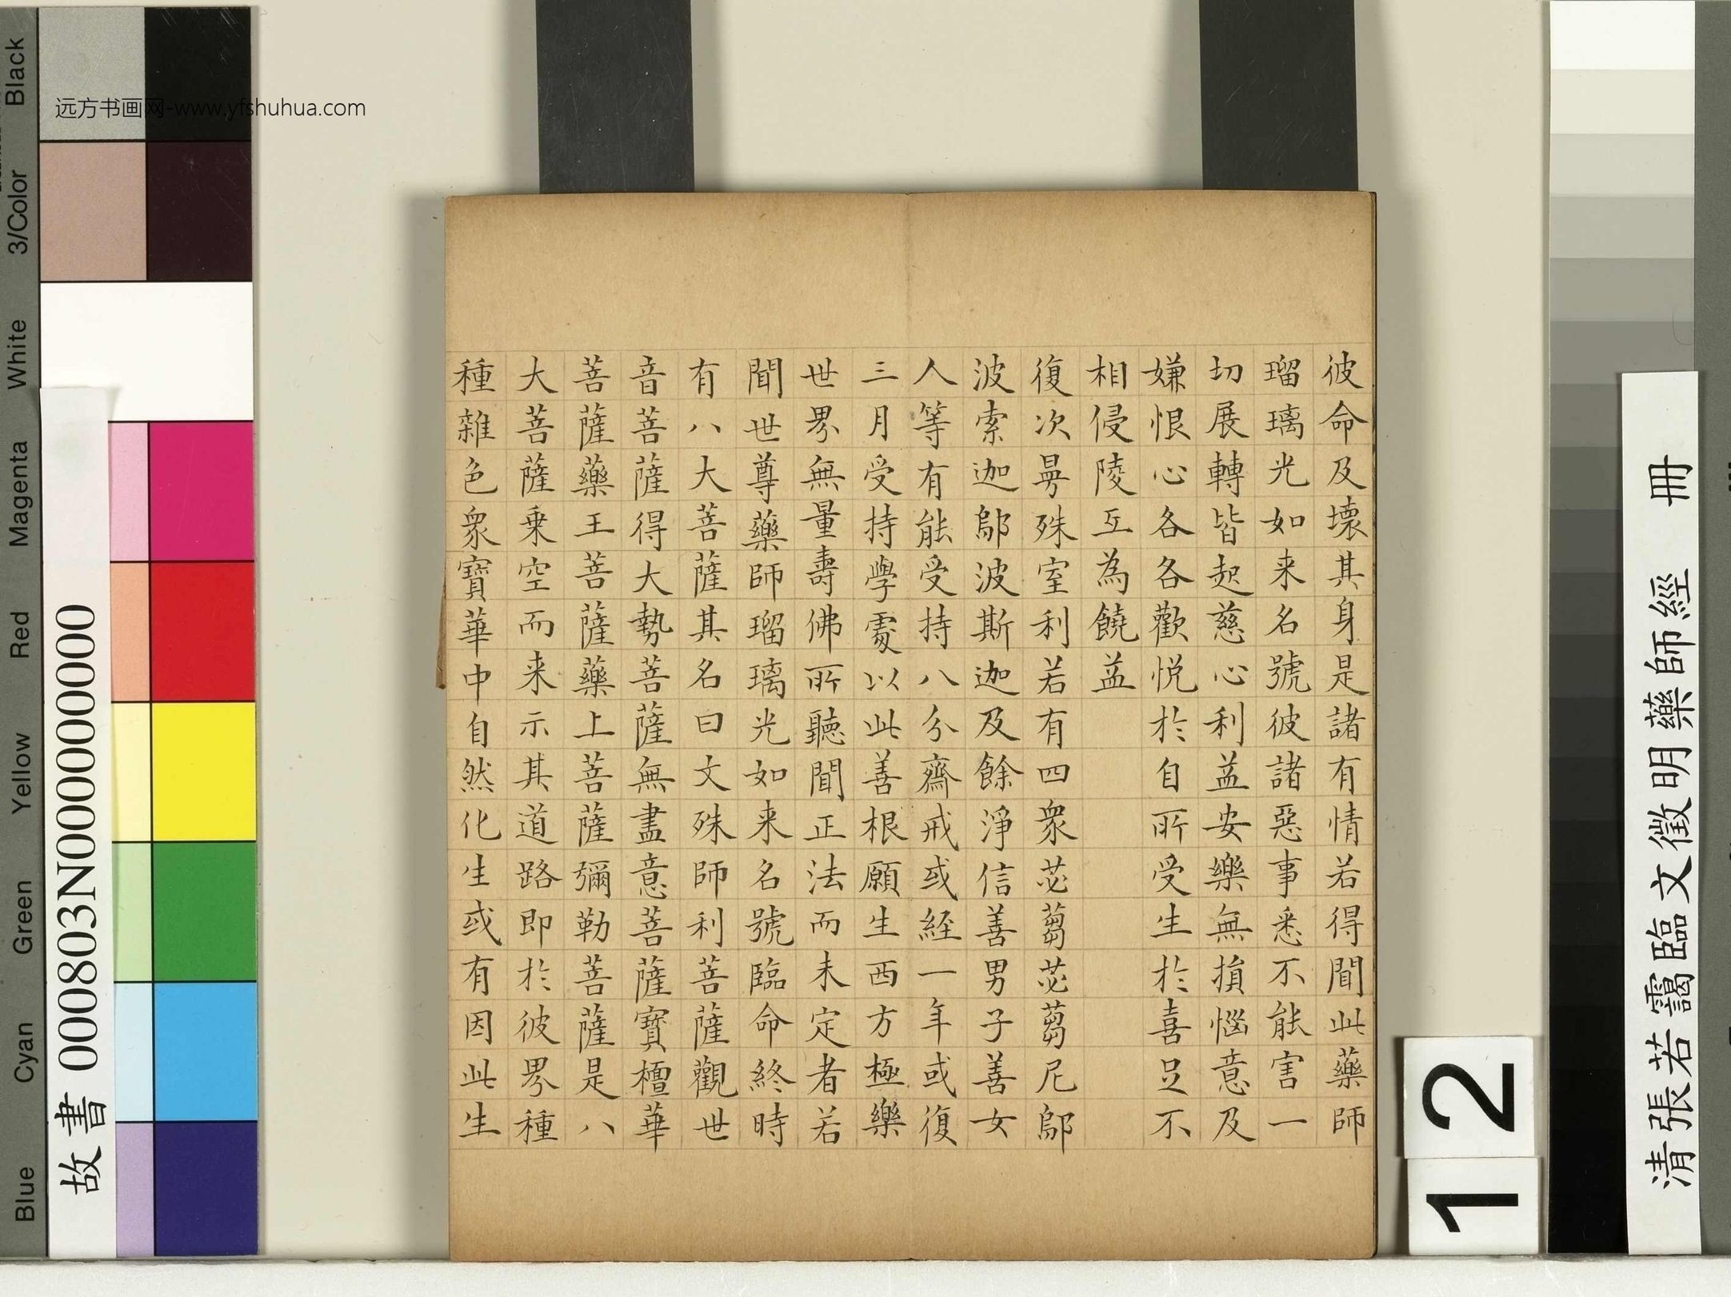 彼命及壞其身是諸有情若得聞此藥師
瑠璃光如来名號彼諸惡事悉不能害一
切展轉皆起慈心利益安樂無損惱意及
嫌恨心各各歡悦於自所受生於喜足不
相侵陵互為饒益
復次曼殊室利若有四衆苾蒭苾蒭尼鄔
波索迦鄔波斯迦及餘淨信善男子善女
人等有能受持八分齋戒或經一年或復
三月受持學處以此善根願生西方極樂
世界無量壽佛所聽聞正法而未定者若
聞世尊藥師瑠璃光如来名號臨命終時
有八大菩薩其名曰文殊師利菩薩觀世
音菩薩得大勢菩薩無盡意菩薩寶檀華
菩薩藥王菩薩藥上菩薩彌勒菩薩是八
大菩薩乗空而来示其道路即於彼界種
種雜色衆寶華中自然化生或有因此生
清張若靄臨文徵明藥師經 冊
12
故書 000803N000000000
远方书画网-www.yfshuhua.com
Blue
Cyan
Green
Yellow
Red
Magenta
White
3/Color
Black